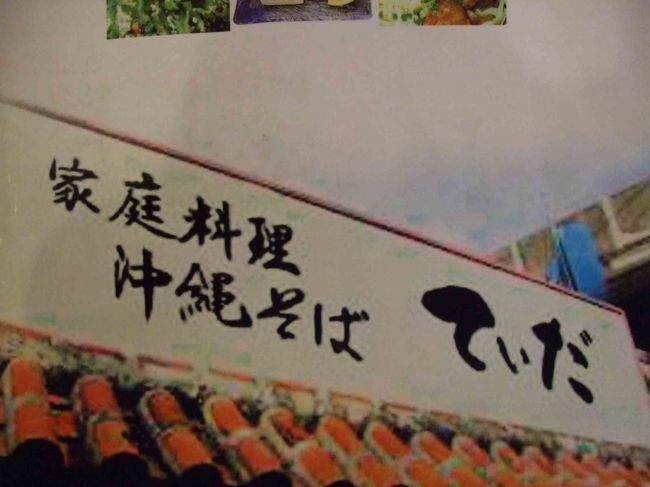 家庭料理
沖縄そば
てぃだ